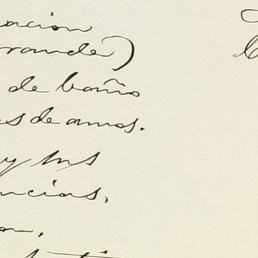 acion
grande)
de baño
es de amos.
y sus
encias,
on.